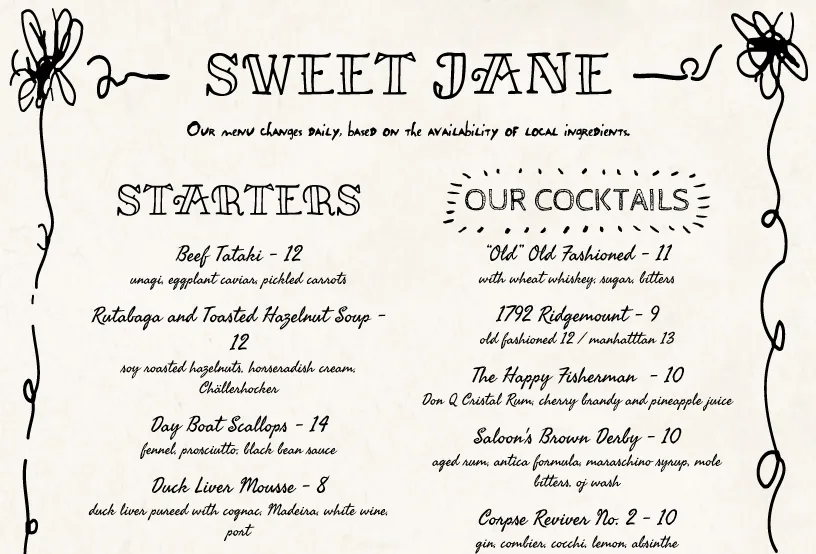 SWEET JANE
Our menu changes daily, based on the availability of local ingredients.
STARTERS
Beef Tataki - 12
unagi, eggplant caviar, pickled carrots
Rutabaga and Toasted Hazelnut Soup -
12
soy roasted hazelnuts, horseradish cream,
Chällerhocker
Day Boat Scallops - 14
fennel, prosciutto, black bean sauce
Duck Liver Mousse - 8
duck liver pureed with cognac, Madeira, white wine,
port
OUR COCKTAILS
"Old" Old Fashioned - 11
with wheat whiskey, sugar, bitters
1792 Ridgemount - 9
old fashioned 12 / manhatttan 13
The Happy Fisherman - 10
Don Q Cristal Rum, cherry brandy and pineapple juice
Saloon's Brown Derby - 10
aged rum, antica formula, maraschino syrup, mole
bitters, oj wash
Corpse Reviver No. 2 - 10
gin, combier, cocchi, lemon, absinthe